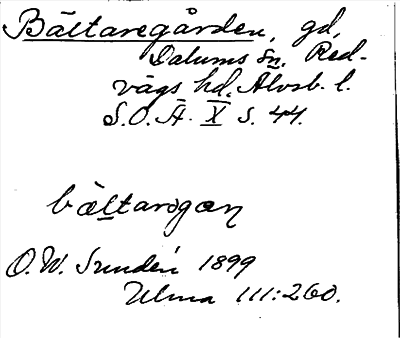 Bältaregården, gd,
Dalums sn. Red-
vägs hd. Älvsb. l.
S.O.Ä. X s. 44.
bältarogan
O.W. Sundén 1899
Ulma 111:260.